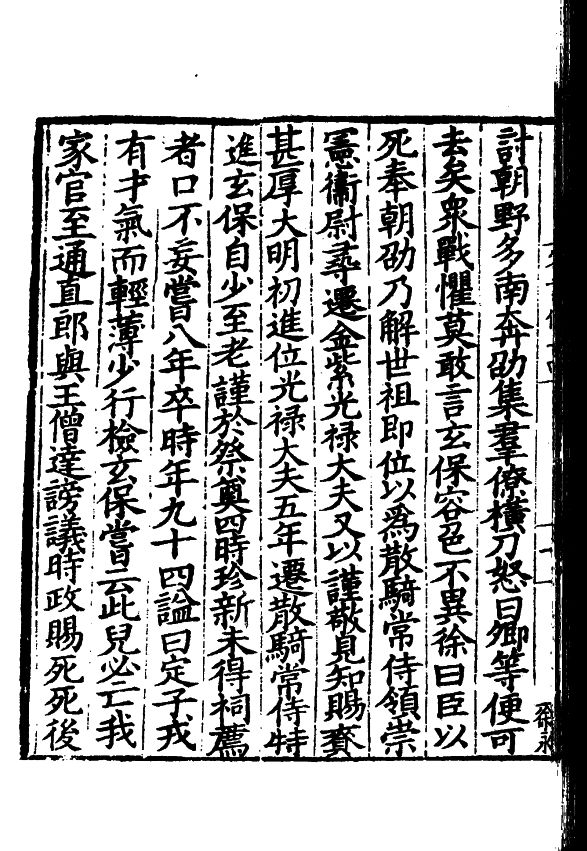 討朝野多南奔劭集羣僚橫刀怒曰卿等便可
去矣衆戰懼莫敢言玄保容色不異徐曰臣以
死奉朝劭乃解世祖即位以爲散騎常侍領崇
憲衞尉尋遷金紫光祿大夫又以謹敬見知賜賚
甚厚大明初進位光祿大夫五年遷散騎常侍特
進玄保自少至老謹於祭奠四時珍新未得祠薦
者口不妄嘗八年卒時年九十四謚曰定子戎
有才氣而輕薄少行檢玄保嘗云此兒必亡我
家官至通直郎與王僧達謗議時政賜死死後